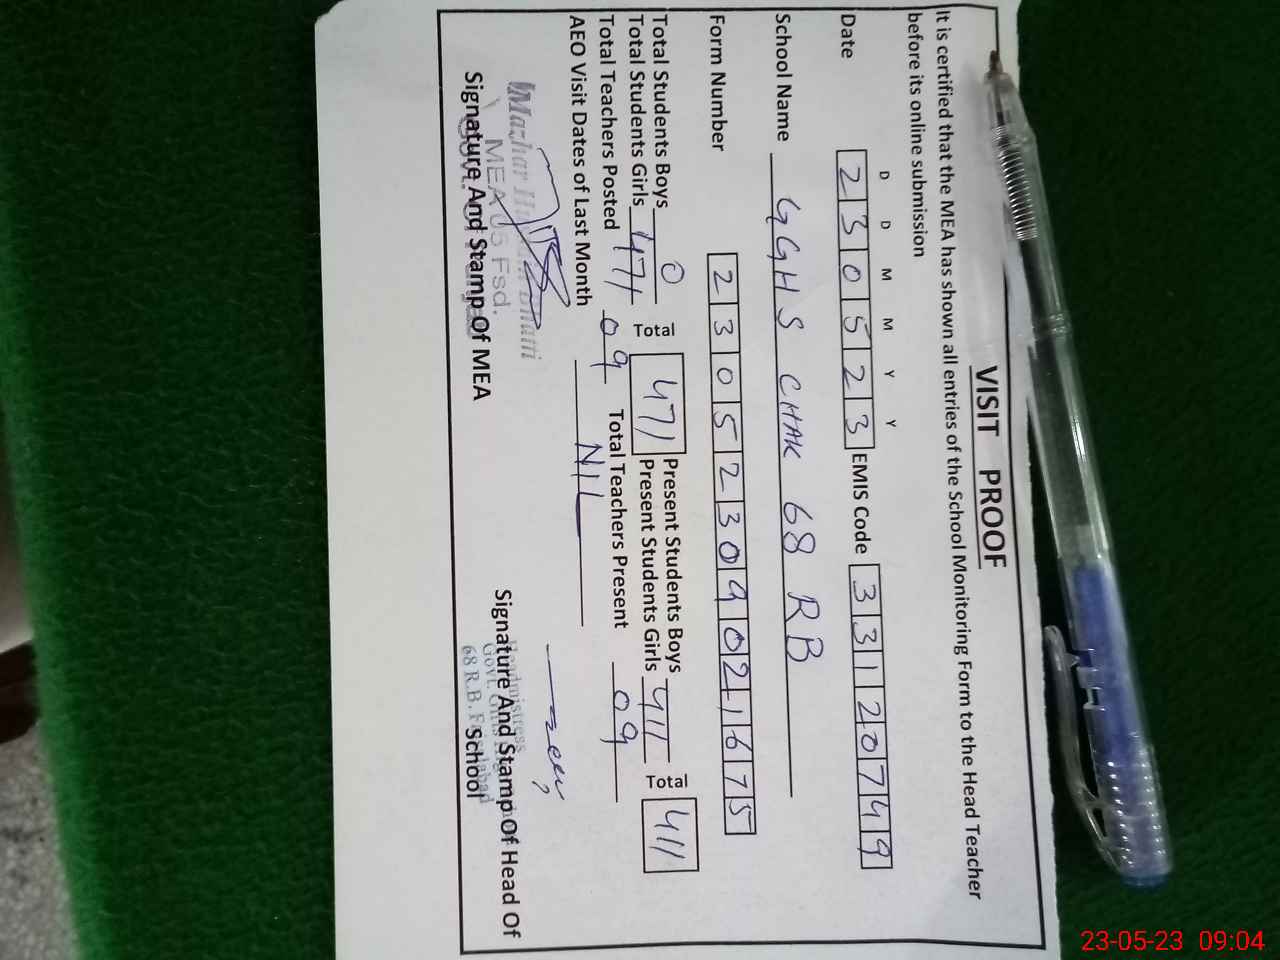 VISIT PROOF
It is certified that the MEA has shown all entries of the School Monitoring Form to the Head Teacher
before its online submission
D D M M Y Y
Date 230523 EMIS Code 33120749
School Name GGHS CHAK 68 RB
Form Number 23052309021675
Total Students Boys 0 Total 471 Present Students Boys Total 411
Total Students Girls 471 Present Students Girls 411
Total Teachers Posted 09 Total Teachers Present 09
AEO Visit Dates of Last Month NIL
Mazhar Bhatti
MEA 05 Fsd.
Signature And Stamp Of MEA
Headmistress
Govt. Girls
68 R.B. Faisalabad
Signature And Stamp Of Head Of
School
23-05-23 09:04